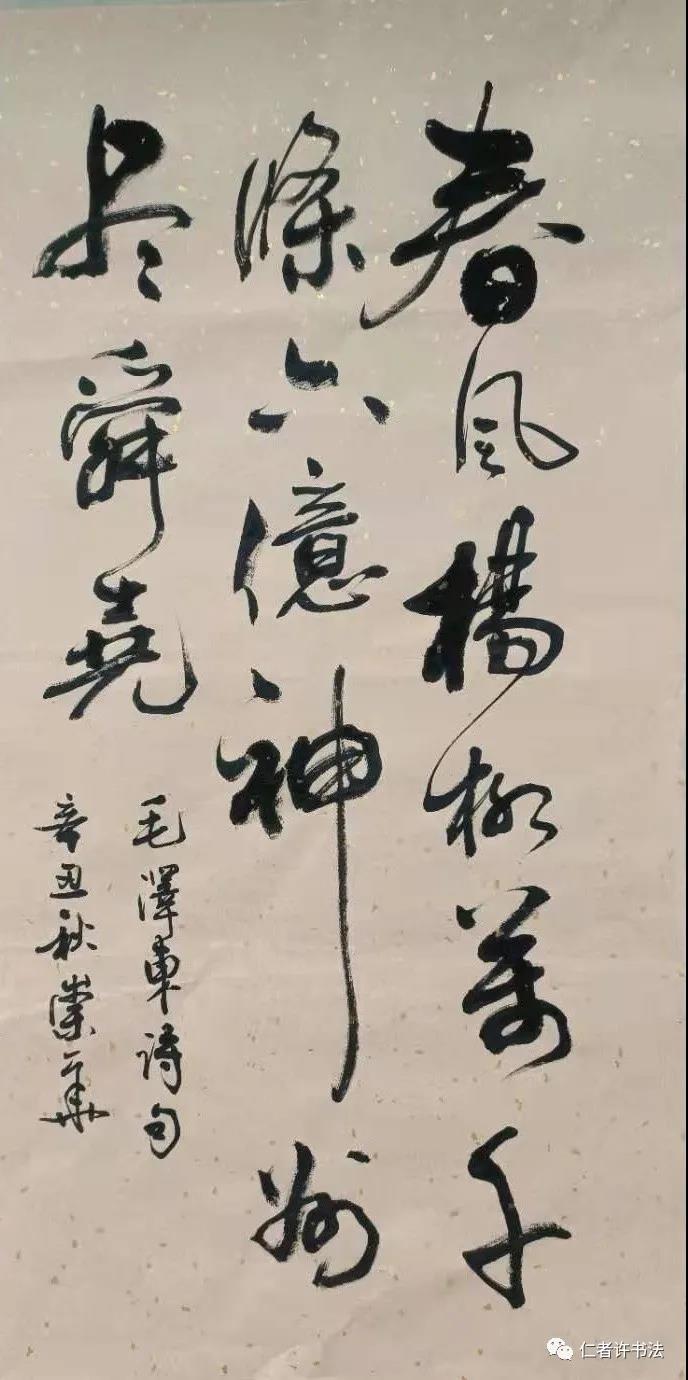 春风楊柳萬千
條六億神州
尽舜堯
毛澤東詩句
辛丑秋崇華
仁者许书法